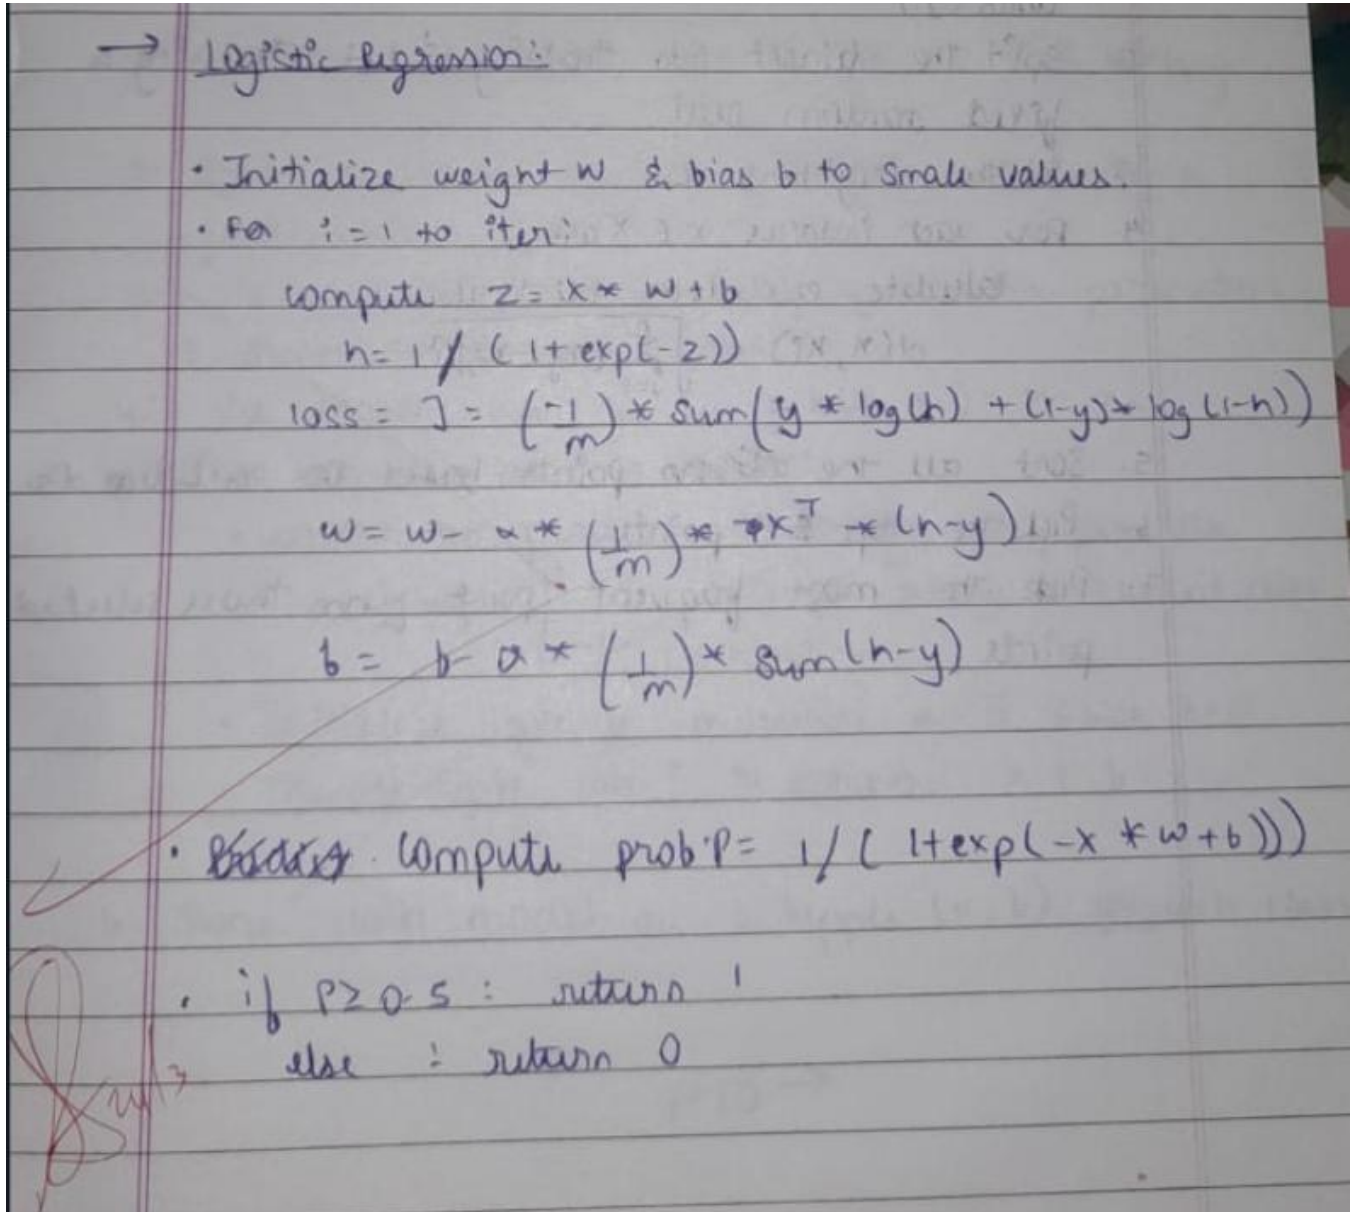 → Logistic Regression:
• Initialize weight w & bias b to small values.
• For i = 1 to iter:
compute z = x * w + b
h = 1 / (1 + exp(-z))
loss = J = (-1/m) * sum(y * log(h) + (1-y) * log(1-h))
w = w - α * (1/m) * x^T * (h-y)
b = b - α * (1/m) * sum(h-y)
• compute prob·P = 1/(1+exp(-x * w + b)))
• if P ≥ 0.5 : return 1
else : return 0